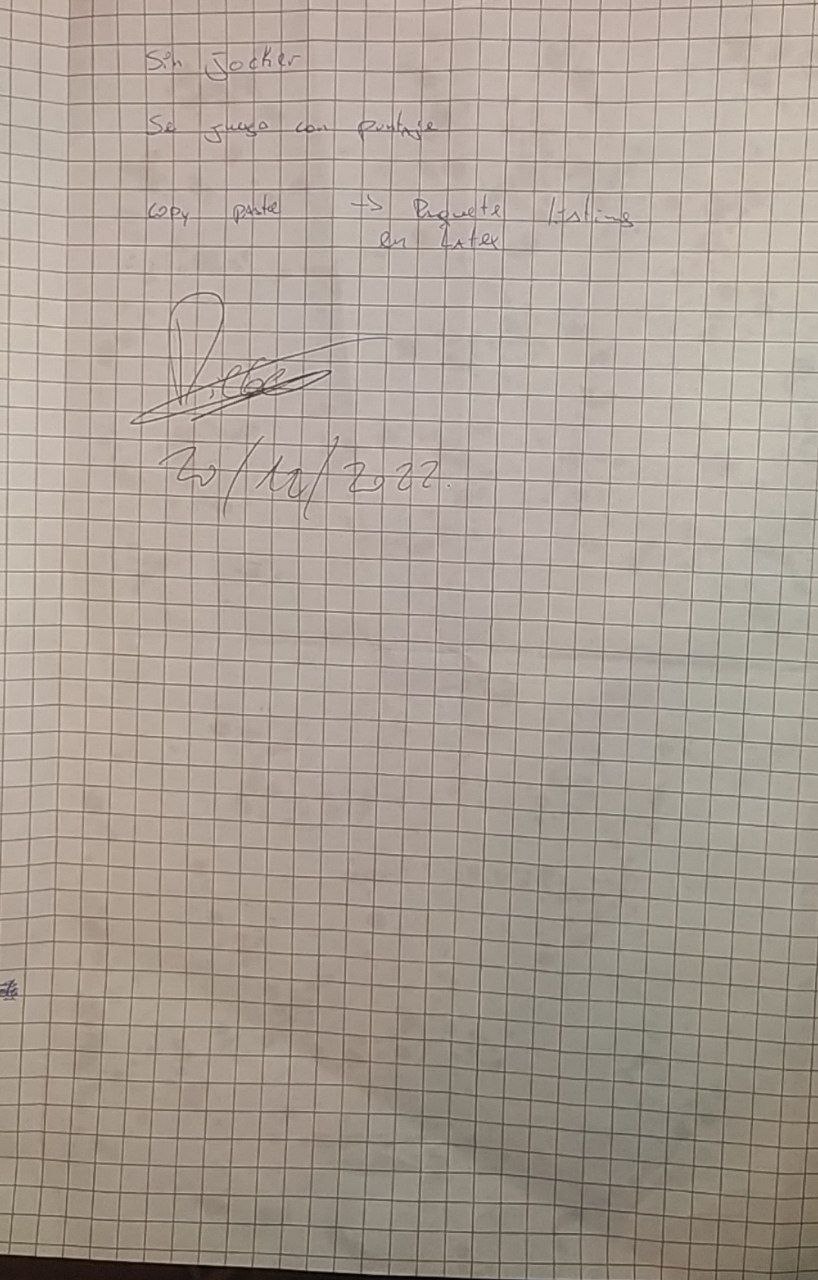 Sin Jocker
Se juega con puntaje
copy paste → Paquete listing
en Latex
20/12/2022.